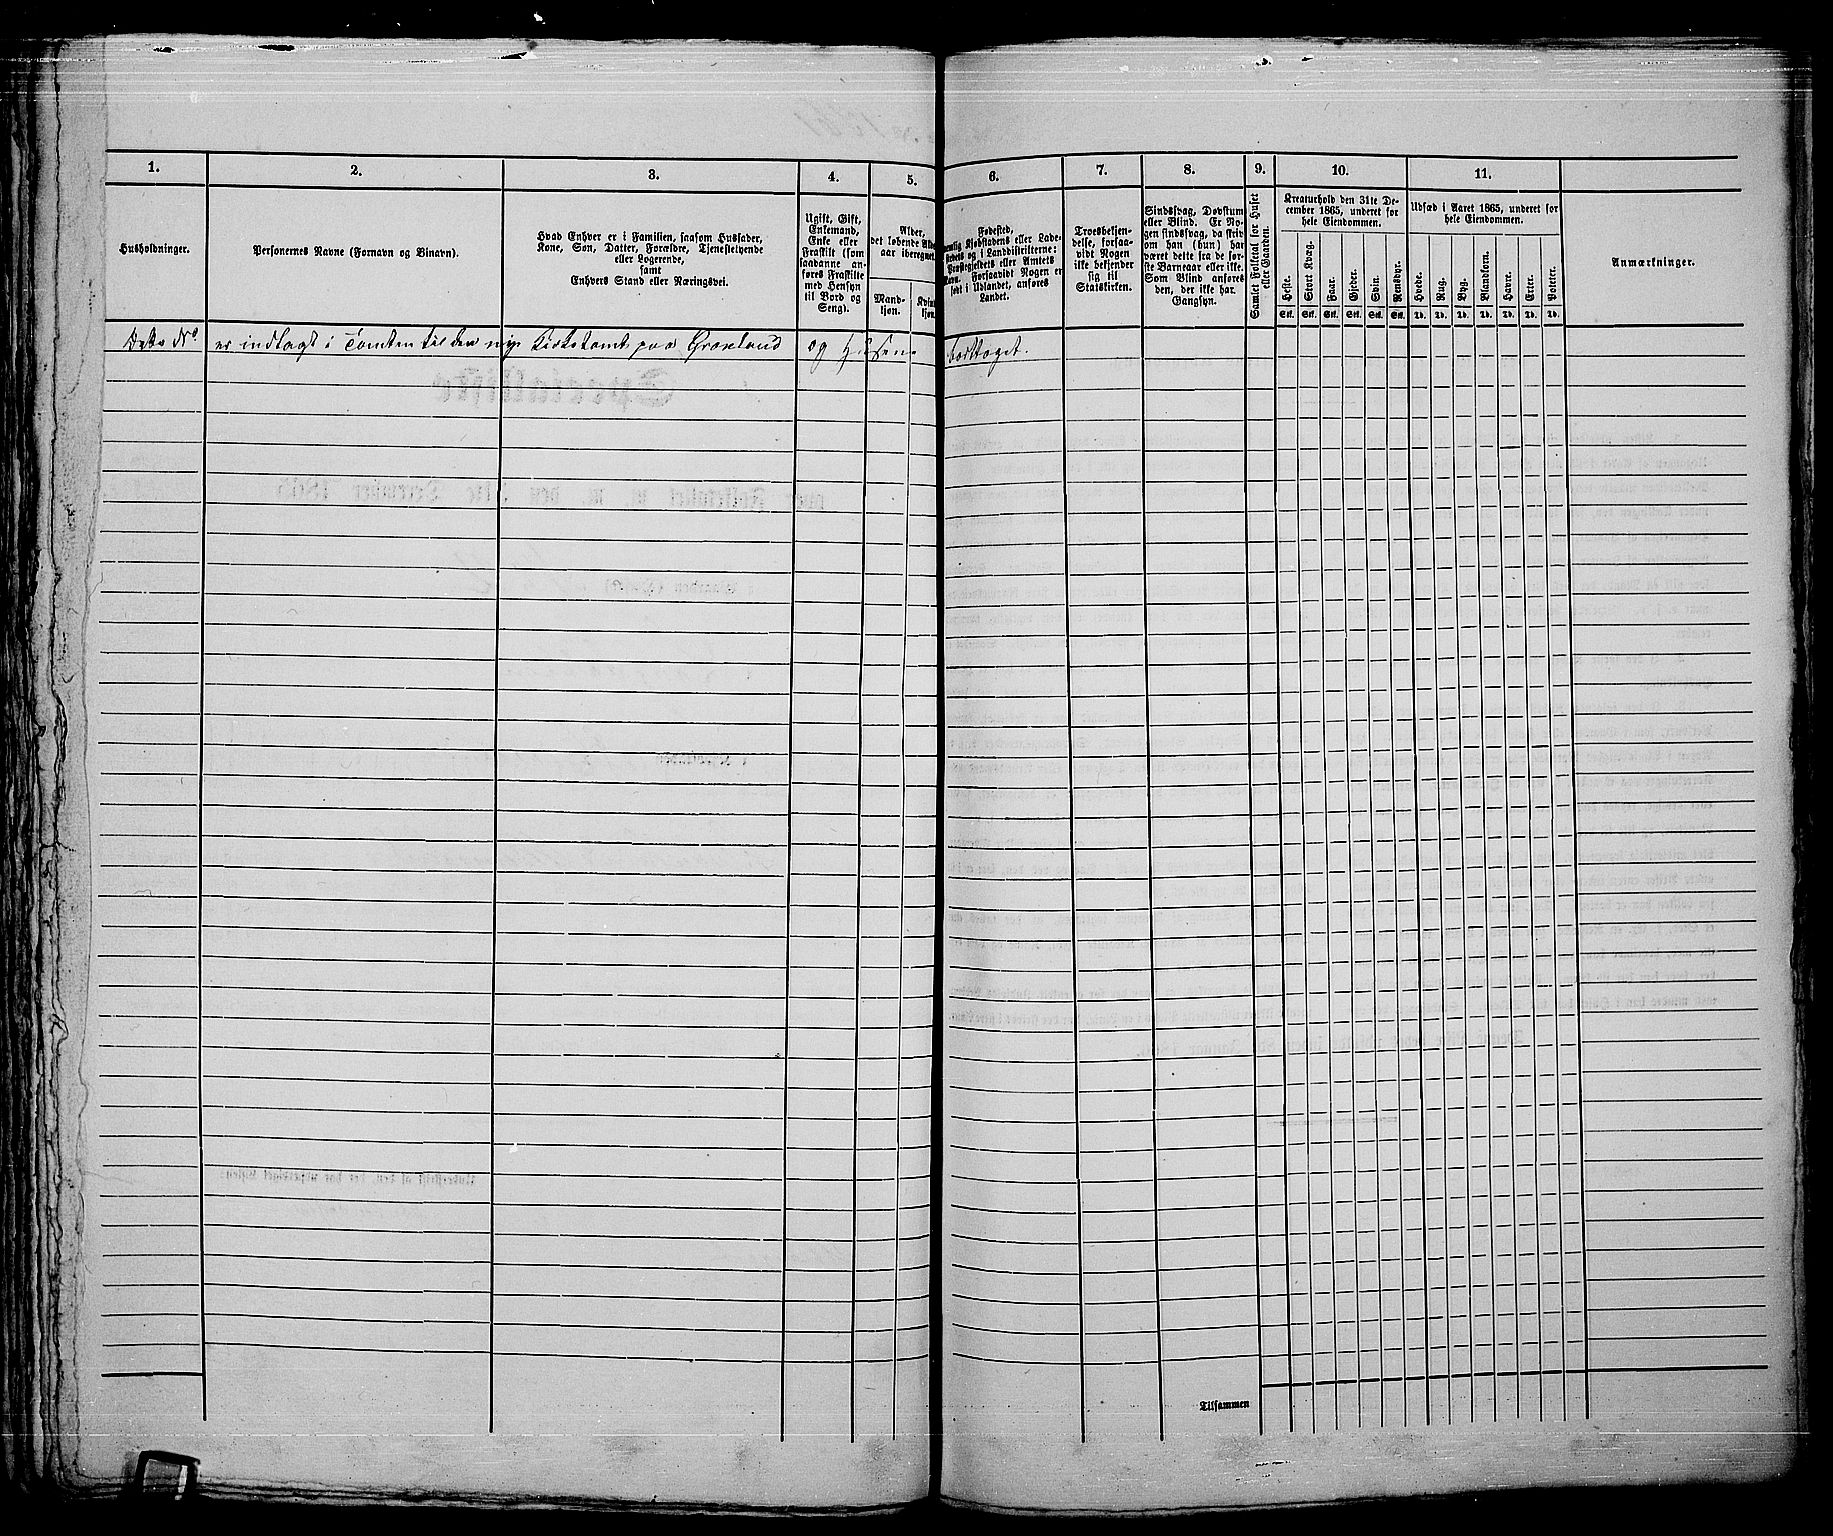 1.
2.
3.
4.
5.
6.
7.
8.
9.
10.
11.
Husholdninger.
Personernes Navne (Fornavn og Binavn).
Hvad Enhver er i Familien, saasom Husfader,
Kone, Søn, Datter, Forældre, Tjenestetyende
eller Logerende,
samt
Enhvers Stand eller Næringsvei.
Ugift, Gift,
Enkemand,
Enke eller
Fraskilt (som
saadanne an-
føres Fraskilte
med Hensyn
til Bord og
Seng).
Alder,
det løbende Al
aar iberegnet.
Mand-
kjøn.
Kvin
kjøn.
Fødested,
nemlig Kjøbstadens eller Lade-
stedets og i Landdistrikterne:
Præstegjeldets eller Amtets
Navn.
Forsaavidt Nogen er
født i Udlandet, anføres
Landet.
Troesbekjen-
delse, forsaa-
vidt Nogen
ikke bekjender
sig til
Statskirken.
Sindssvag, Døvstum
eller Blind. Er No-
gen sindssvag, da skriv
om han (hun) har
været dette fra de før-
ste Barneaar eller ikke.
Som Blind anføres
den, der ikke har
Gangsyn.
Samlet Folketal for Huset
eller Gaarden.
Kreaturhold den 31te De-
cember 1865, underet for
hele Eiendommen.
Heste.
Stort Kvæg.
Faar.
Gjeder.
Svin.
Rensdyr.
Stk. Stk. Stk. Stk. Stk. Stk.
Udsæd i Aaret 1865, underet for
hele Eiendommen.
Hvede.
Rug.
Byg.
Blandkorn.
Havre.
Erter.
Poteter.
Td. Td. Td. Td. Td. Td. Td.
Anmærkninger.
Dette No er indtagt i Tomten til den nye Kirketomt paa Grønland og Husene borttaget.
Tilsammen